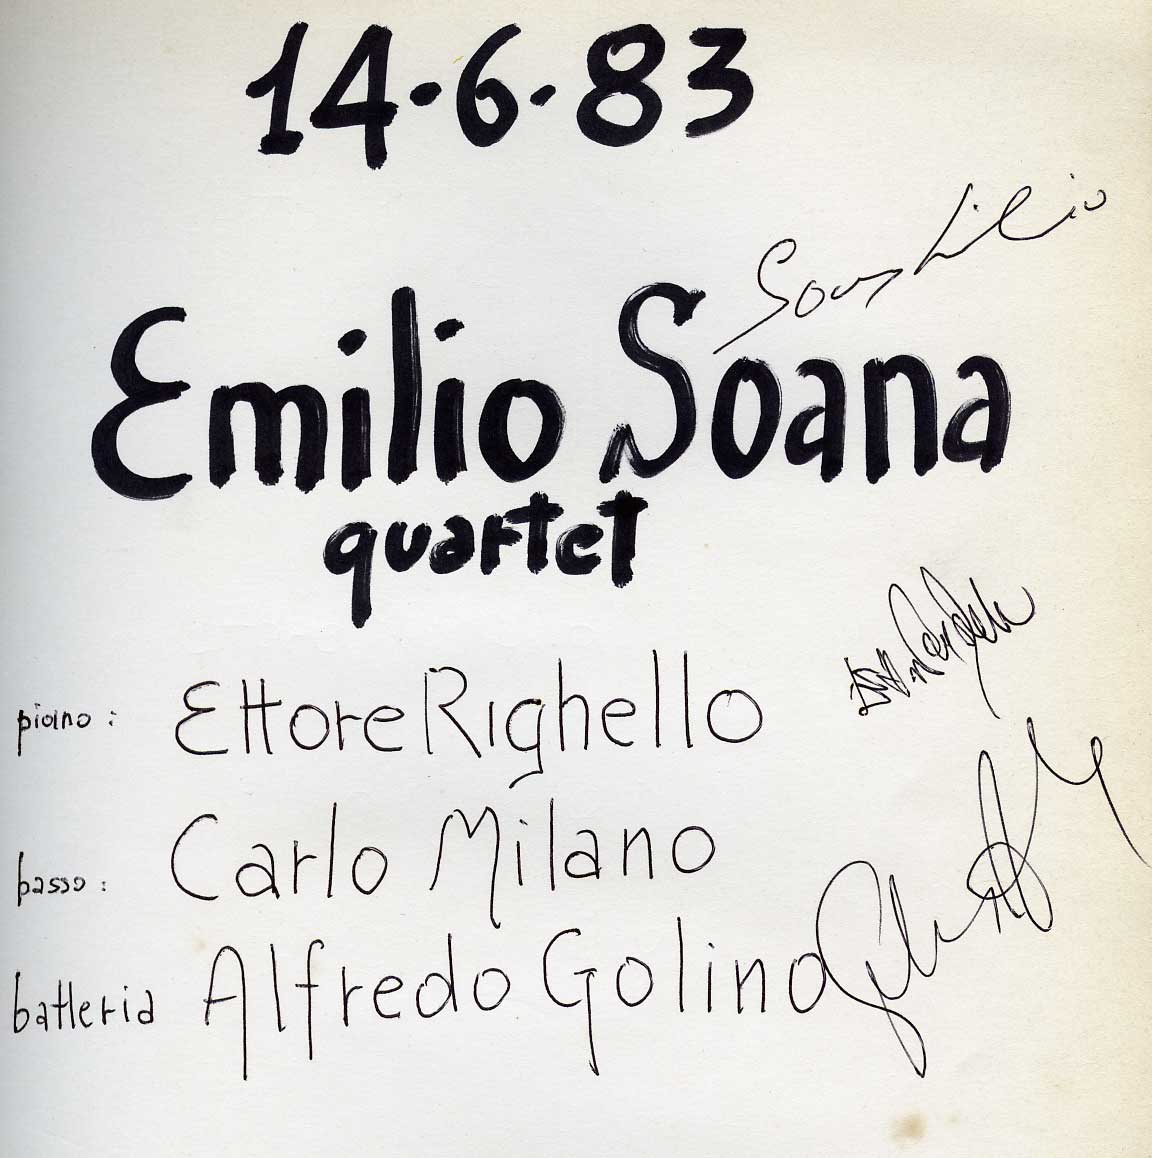 14·6·83
Emilio Soana
quartet
piano: Ettore Righello
basso: Carlo Milano
batteria Alfredo Golino